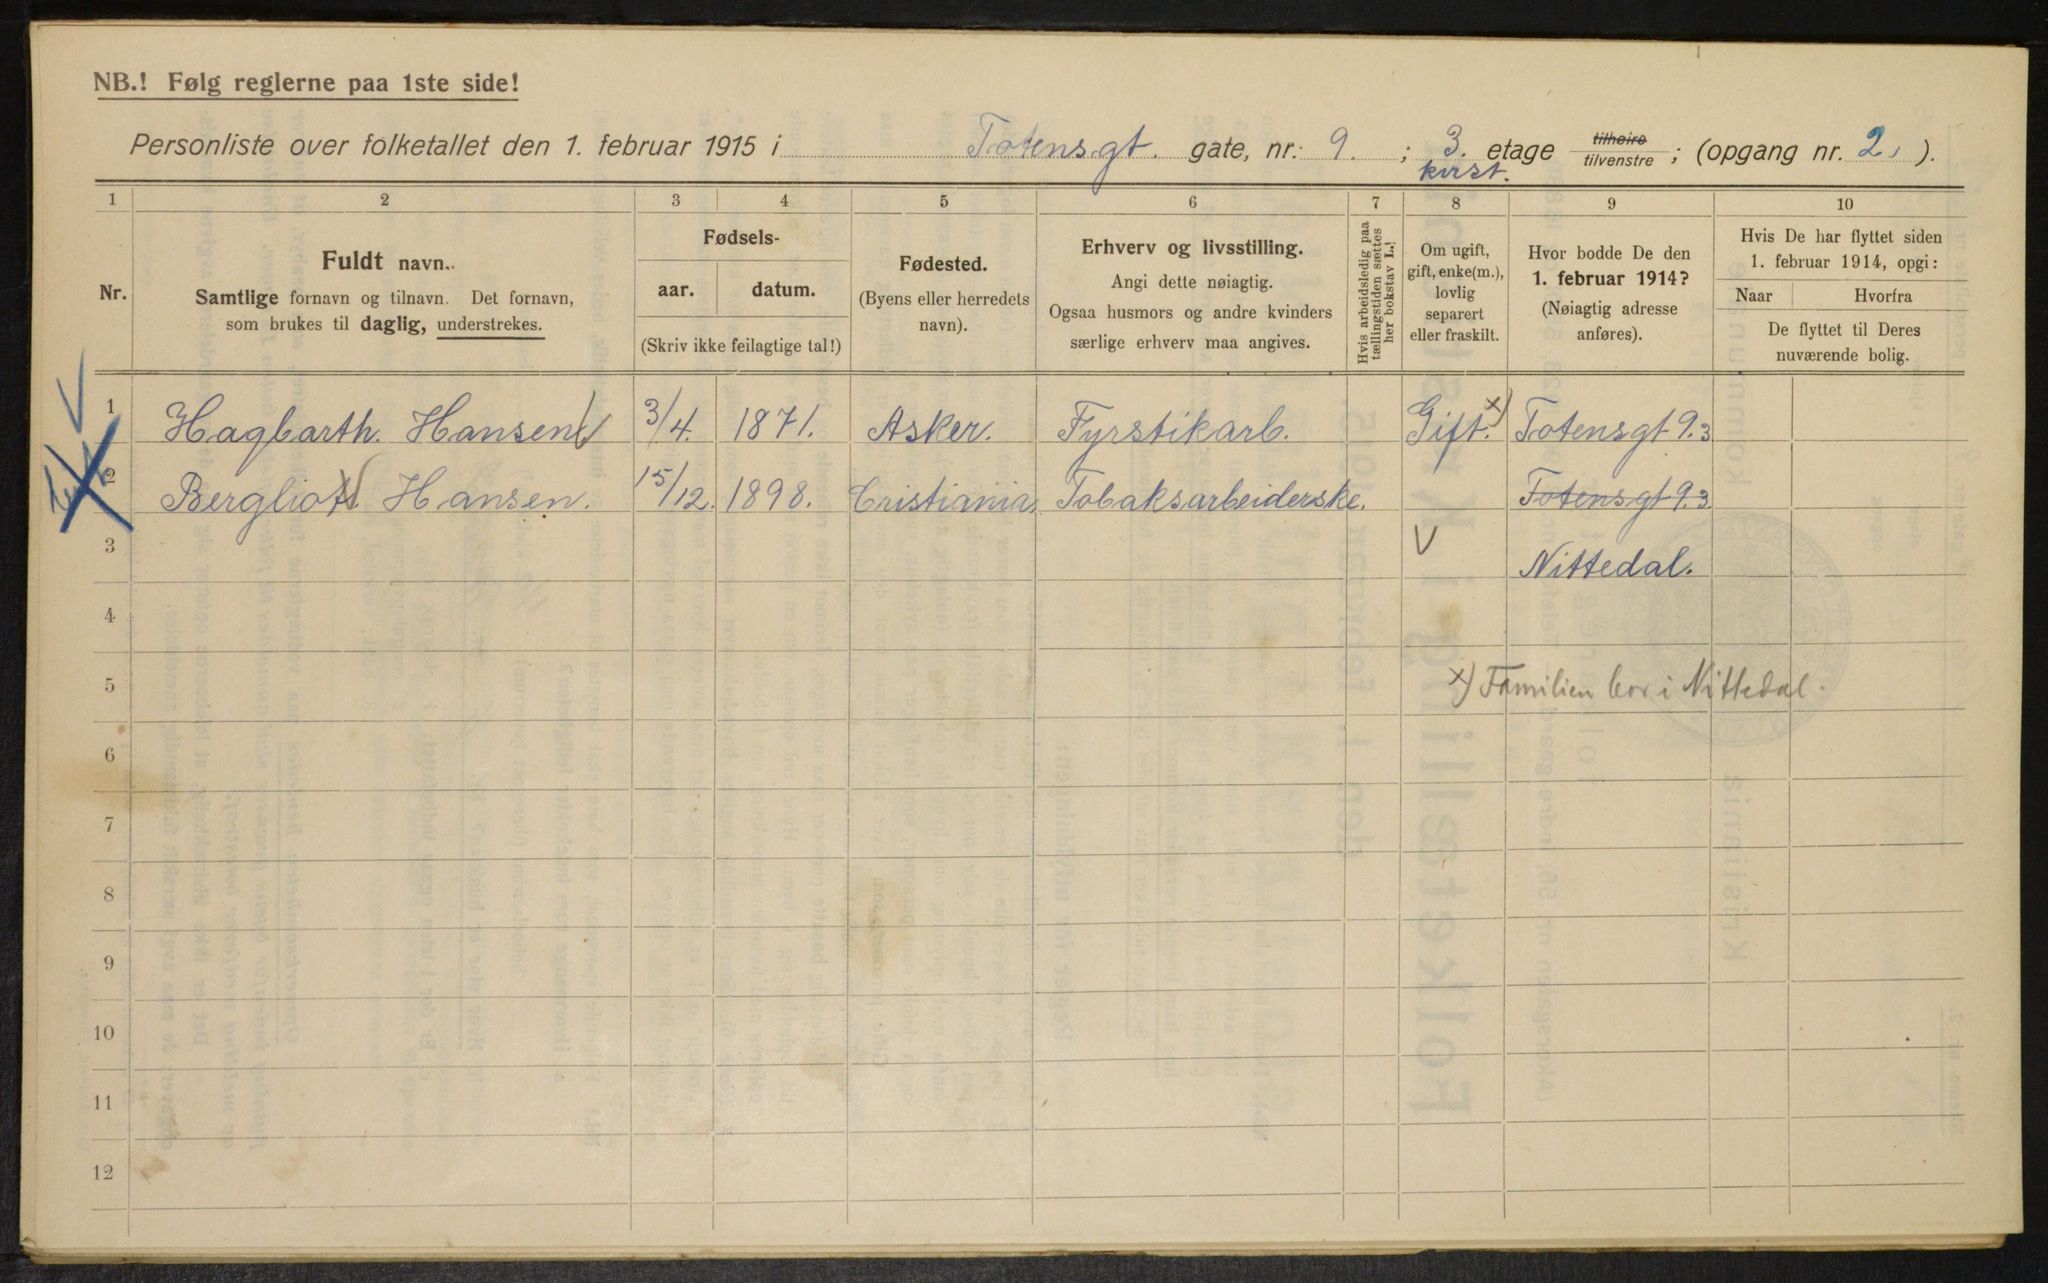 NB.! Følg reglerne paa 1ste side!
Personliste over folketallet den 1. februar 1915 i Totensgt. gate, nr. 9. ; 3. etage tilhøire tilvenstre ; (opgang nr. 2, ).
kvist.
1 2 3 4 5 6 7 8 9 10
Nr.
Fuldt navn.
Samtlige fornavn og tilnavn. Det fornavn,
som brukes til daglig, understrekes.
Fødsels-
aar. datum.
(Skriv ikke feilagtige tal!)
Fødested.
(Byens eller herredets
navn).
Erhverv og livsstilling.
Angi dette nøiagtig.
Ogsaa husmors og andre kvinders
særlige erhverv maa angives.
Hvis arbeidsledig paa
tællingstiden sættes
her bokstav L.
Om ugift,
gift, enke(m.),
lovlig
separert
eller fraskilt.
Hvor bodde De den
1. februar 1914?
(Nøiagtig adresse
anføres).
Hvis De har flyttet siden
1. februar 1914, opgi:
Naar Hvorfra
De flyttet til Deres
nuværende bolig.
1 Hagbarth. Hansen 3/4. 1871. Asker. Fyrstikarb. Gift. x) Totensgt 9. 3
2 Bergliot. Hansen. 15/12. 1898. Cristiania. Tobaksarbeiderske. Totensgt 9. 3
3 Nittedal.
4
5 x) Familien bor i Nittedal.
6
7
8
9
10
11
12